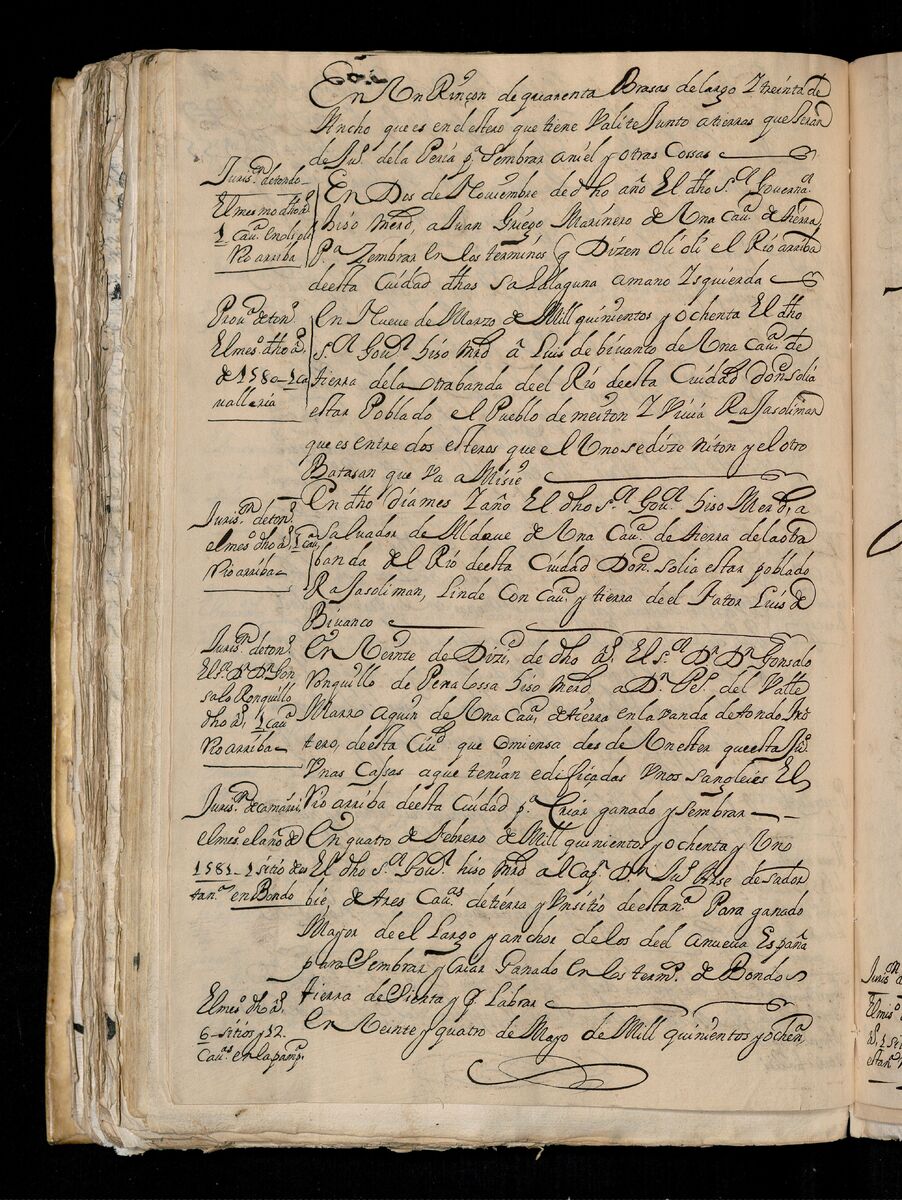 En Vn Rinçon de quarenta Brasas de largo Y treinta de
Ancho que es en el estero que tiene Valite Junto a tierras que seran
de Juº de la Peria pª Sembrar aniel y otras Cossas
Jurisºⁿ de tondo
El mesmo dho aº
1 Cauª en oli oli
Rio arriba
En Dos de Nouiembre de dho año El dho sºʳ Gouernaºʳ
hiso Merd, a Juan Griego Marinero de Una Cauª de tierra
Pª Zembrar en los terminos q̃ Dizen Oli oli el Rio arriba
de esta Cuidad dhas sa Lalaguna a mano Yzquierda
Prouª de tonº
El mesº dho aº
de 1580 - 1 ca
ualleria
En Nueue de Marzo de Mill quinientos y ochenta El dho
sºʳ Gouºʳ hiso Mrd â Luis de biuanco de Una Cauª de
tierra de la otra banda de el Rio de esta Cuidad donº solia
estar Poblado el Pueblo de meiton Y Viuia Raſasoliman
que es entre dos esteros que el Uno se dize Niton y el otro
Batasan que Va a Misiº
Jurisºⁿ de tonº
el mesº dho aº, 1 Cauª
Rio arriba
En dho dia mes Y año El dho sºʳ Gouºʳ hiso Merd, a
Saluador de Aldaue de Una Cauª de tierra de la otra
banda de el Rio de esta Ciudad Donº solia estar poblado
Raſasoliman, Linde Con Cauª y tierra de el Fator Luis de
Biuanco
Jurisºⁿ de tonº
El sºʳ Dʳ Dⁿ Gon
salo Ronquillo
dho aº, 1 Cauª
Rio arriba
En Veinte de Diziº de dho aº, El sºʳ Dⁿ Dⁿ Gonsalo
Ronquillo de Peñalossa hiso Merd, a Dⁿ Peº del Valle
Marro aquin de Una Cauª de tierra en la vanda de tondo Fro
tero, de esta Ciuª que Comiensa des de Un ester que esta Juº
Vnas Cassas a que tenian edificadas Vnos sangleies El
Rio arriba de esta Ciudad pª Criar ganado y sembrar
Jurisºⁿ de camariº
el mesº el año de
1581 - 1 sitio de es
tanª en Bondo
En quatro de Febrero de Mill quinientos y ochenta y Vno
El dho sºʳ Gouºʳ hiso Mrd al Capⁿ Dⁿ Juº Arse de sador
bie, de tres Cauªs de tierra y Vn sitio de estanª Para ganado
Mayor de el Largo y anchor de los de la nueua España
para Sembrar y Criar Ganado en los termºs de Bondo
tierra de Sienta y q̃ Labrar
El mesº dho aº
6 - sitios y 12
Cauªs en la pampº
En Veinte y quatro de Mayo de Mill quinientos y ochenª